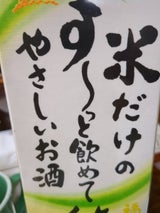 米だけの
す〜っと飲めて
やさしいお酒